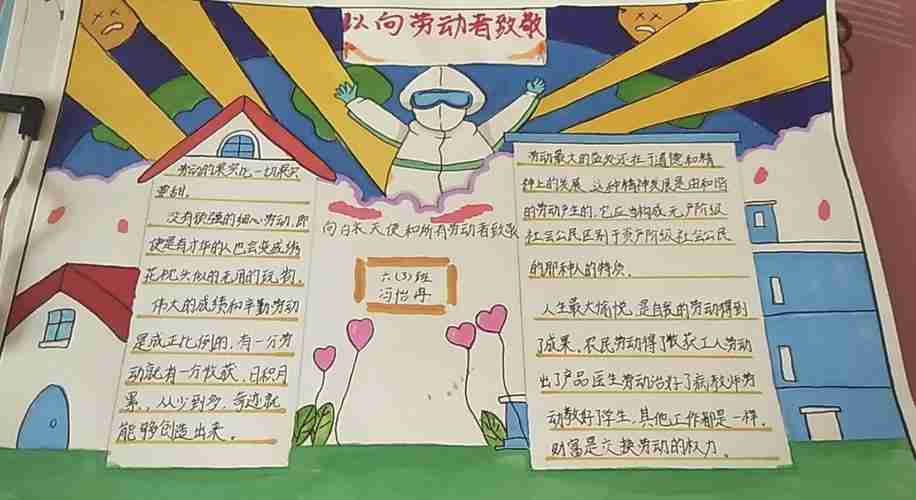 以向劳动者致敬
劳动的果实比一切果实
更甜。
没有顽强的细心劳动,即
使是有才华的人也会变成绣
花枕头似的无用的玩物。
伟大的成绩和辛勤劳动
是成正比例的,有一分劳
动就有一分收获,日积月
累,从少到多,奇迹就
能够创造出来。
向白衣天使和所有劳动者致敬
六(3)班
冯怡冉
劳动最大的益处还在于道德和精
神上的发展 这种精神发展是由和谐
的劳动产生的,它应当构成无产阶级
社会公民区别于资产阶级社会公民
的那种人的特质。
人生最大愉悦,是自我的劳动得到
了成果。农民劳动得了收获 工人劳动
出了产品 医生劳动治好了病 教师劳
动教好了学生,其他工作都是一样。
财富是交换劳动的权力。